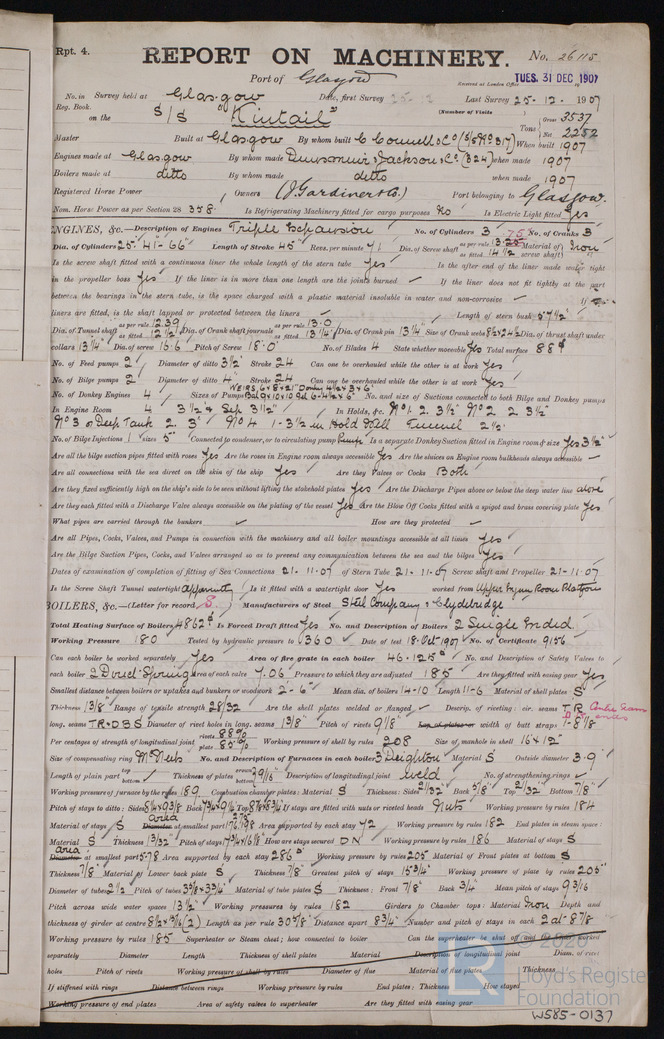 Rpt. 4.
REPORT ON MACHINERY.
No. 26115
Port of Glasgow
Received at London Office
TUES. 31 DEC 1907
No. in Survey held at Glasgow Date, first Survey 25-12 Last Survey 25-12-1907
Reg. Book. (Number of Visits
on the S/S "Kintail" Tons Gross 3537 Net 2252
Master Built at Glasgow By whom built C. Connell & Co (S/S No 317) When built 1907
Engines made at Glasgow By whom made Dunsmuir & Jackson & Co. (324) when made 1907
Boilers made at ditto By whom made ditto when made 1907
Registered Horse Power Owners (J. Gardiner & Co.) Port belonging to Glasgow.
Nom. Horse Power as per Section 28 358 Is Refrigerating Machinery fitted for cargo purposes No Is Electric Light fitted Yes
ENGINES, &c.—Description of Engines Triple Expansion No. of Cylinders 3 No. of Cranks 3
Dia. of Cylinders 25"-41"-66" Length of Stroke 45" Revs. per minute 71 Dia. of Screw shaft as per rule 13.25 as fitted 14 1/2 Material of screw shaft Iron
Is the screw shaft fitted with a continuous liner the whole length of the stern tube Yes Is the after end of the liner made water tight
in the propeller boss Yes If the liner is in more than one length are the joints burned If the liner does not fit tightly at the part
between the bearings in the stern tube, is the space charged with a plastic material insoluble in water and non-corrosive If two
liners are fitted, is the shaft lapped or protected between the liners Length of stern bush 57 1/2"
Dia. of Tunnel shaft as per rule 12.39 as fitted 12 1/2 Dia. of Crank shaft journals as per rule 13.0 as fitted 13 1/4 Dia. of Crank pin 13 1/4 Size of Crank webs 8 1/2 x 24 1/2 Dia. of thrust shaft under
collars 13 1/4 Dia. of screw 16.6 Pitch of Screw 18.0 No. of Blades 4 State whether moveable Yes Total surface 88
No. of Feed pumps 2 Diameter of ditto 3 1/2 Stroke 24 Can one be overhauled while the other is at work Yes
No. of Bilge pumps 2 Diameter of ditto 4 Stroke 24 Can one be overhauled while the other is at work Yes
No. of Donkey Engines 4 Sizes of Pumps No. and size of Suctions connected to both Bilge and Donkey pumps
In Engine Room 4 3 1/2" & Sep 3 1/2" In Holds, &c. No 1. 2. 3 1/2" No 2 2. 3 1/2"
No 3 or Deep Tank 2. 3" No 4 1-3 1/2 in Hold Well Tunnel 2 1/2"
No. of Bilge Injections 1 sizes 5" Connected to condenser, or to circulating pump Pump Is a separate Donkey Suction fitted in Engine room & size Yes 3 1/2"
Are all the bilge suction pipes fitted with roses Yes Are the roses in Engine room always accessible Yes Are the sluices on Engine room bulkheads always accessible
Are all connections with the sea direct on the skin of the ship Yes Are they Valves or Cocks Both
Are they fixed sufficiently high on the ship's side to be seen without lifting the stokehold plates Yes Are the Discharge Pipes above or below the deep water line above
Are they each fitted with a Discharge Valve always accessible on the plating of the vessel Yes Are the Blow Off Cocks fitted with a spigot and brass covering plate Yes
What pipes are carried through the bunkers How are they protected
Are all Pipes, Cocks, Valves, and Pumps in connection with the machinery and all boiler mountings accessible at all times Yes
Are the Bilge Suction Pipes, Cocks, and Valves arranged so as to prevent any communication between the sea and the bilges Yes
Dates of examination of completion of fitting of Sea Connections 21-11-07 of Stern Tube 21-11-07 Screw shaft and Propeller 21-11-07
Is the Screw Shaft Tunnel watertight Apparently Is it fitted with a watertight door Yes worked from Upper Engine Room Platform
BOILERS, &c.—(Letter for record S.) Manufacturers of Steel Steel Company & Clydebridge
Total Heating Surface of Boilers 4862 Is Forced Draft fitted Yes No. and Description of Boilers 2 Single Ended
Working Pressure 180 Tested by hydraulic pressure to 360 Date of test 18-Oct-1907 No. of Certificate 9156
Can each boiler be worked separately Yes Area of fire grate in each boiler 46.125 No. and Description of Safety Valves to
each boiler 2 Direct Spring Area of each valve 7.06 Pressure to which they are adjusted 185 Are they fitted with easing gear Yes
Smallest distance between boilers or uptakes and bunkers or woodwork 2'-6" Mean dia. of boilers 14-10 Length 11-6 Material of shell plates S
Thickness 1 3/8" Range of tensile strength 28/32 Are the shell plates welded or flanged Descrip. of riveting: cir. seams T.R
long. seams TR.DBS Diameter of rivet holes in long. seams 1 3/8" Pitch of rivets 9 1/8" Lap of plates or width of butt straps
Per centages of strength of longitudinal joint rivets 88% plate 85% Working pressure of shell by rules 208 Size of manhole in shell 16 x 12"
Size of compensating ring McNeils No. and Description of Furnaces in each boiler 3 Deighton Material S Outside diameter 3-9"
Length of plain part top bottom Thickness of plates Description of longitudinal joint weld No. of strengthening rings
Working pressure of furnace by the rules 189 Combustion chamber plates: Material S Thickness: Sides 21/32 Back 5/8" Top 21/32 Bottom 7/8"
Pitch of stays to ditto: Sides Back Top If stays are fitted with nuts or riveted heads Nuts Working pressure by rules 184
Material of stays S Diameter area at smallest part Area supported by each stay 72 Working pressure by rules 182 End plates in steam space:
Material S Thickness 1 3/32 Pitch of stays How are stays secured DN Working pressure by rules 186 Material of stays S
Diameter area at smallest part 5.78 Area supported by each stay 286 Working pressure by rules 205 Material of Front plates at bottom S
Thickness 7/8" Material of Lower back plate S Thickness 7/8" Greatest pitch of stays 15 3/4" Working pressure of plate by rules 205
Diameter of tubes 2 1/2 Pitch of tubes 3 5/8 x 3 3/4" Material of tube plates S Thickness: Front 7/8" Back 3/4" Mean pitch of stays 9 3/16
Pitch across wide water spaces 13 1/2" Working pressures by rules 182 Girders to Chamber tops: Material Iron Depth and
thickness of girder at centre 8 1/2 x 3/4 (2) Length as per rule 30 5/8" Distance apart 8 3/4" Number and pitch of stays in each 2 at-8 7/8
Working pressure by rules 185 Superheater or Steam chest; how connected to boiler Can the superheater be shut off and the boiler worked
separately Diameter Length Thickness of shell plates Material Description of longitudinal joint Diam. of rivet
holes Pitch of rivets Working pressure of shell by rules Diameter of flue Material of flue plates Thickness
If stiffened with rings Distance between rings Working pressure by rules End plates: Thickness How stayed
Working pressure of end plates Area of safety valves to superheater Are they fitted with easing gear
© 2020
Lloyd's Register
Foundation
W585-0137